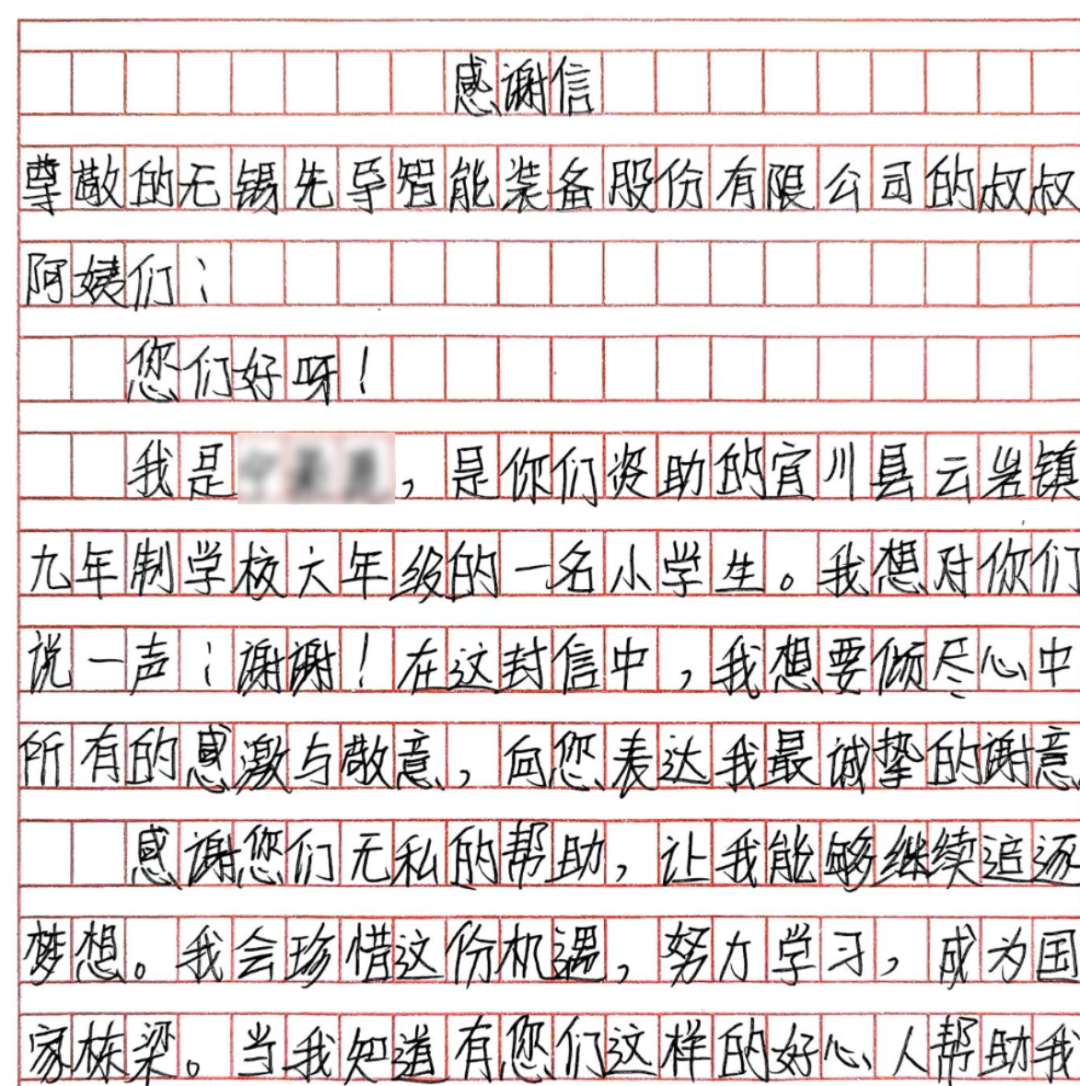 感谢信
尊敬的无锡先导智能装备股份有限公司的叔叔
阿姨们：
您们好呀！
我是，是你们资助的宜川县云岩镇
九年制学校六年级的一名小学生。我想对你们
说一声：谢谢！在这封信中，我想要倾尽心中
所有的感激与敬意，向您表达我最诚挚的谢意
感谢您们无私的帮助，让我能够继续追逐
梦想。我会珍惜这份机遇，努力学习，成为国
家栋梁。当我知道有您们这样的好心人帮助我